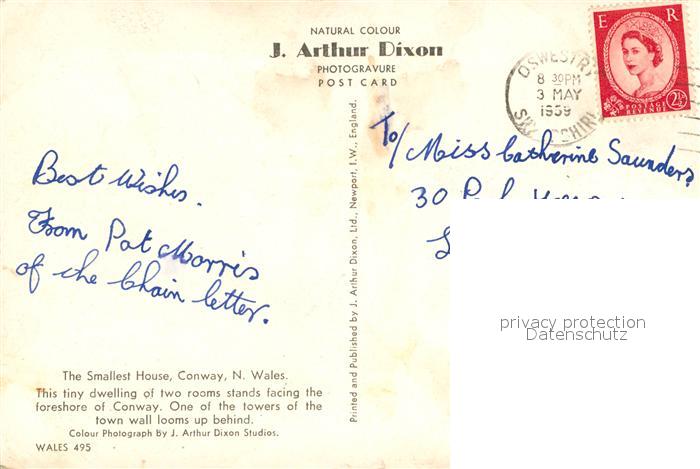 NATURAL COLOUR
J. Arthur Dixon
PHOTOGRAVURE
POST CARD
E R
POSTAGE
REVENUE
2½
OSWESTRY
8 30PM
3 MAY
1959
Printed and Published by J. Arthur Dixon, Ltd., Newport, I.W., England.
Best Wishes.
From Pat Morris
of the Chain letter.
To/ Miss Catherine Saunders
30
privacy protection
Datenschutz
The Smallest House, Conway, N. Wales.
This tiny dwelling of two rooms stands facing the
foreshore of Conway. One of the towers of the
town wall looms up behind.
Colour Photograph by J. Arthur Dixon Studios.
WALES 495